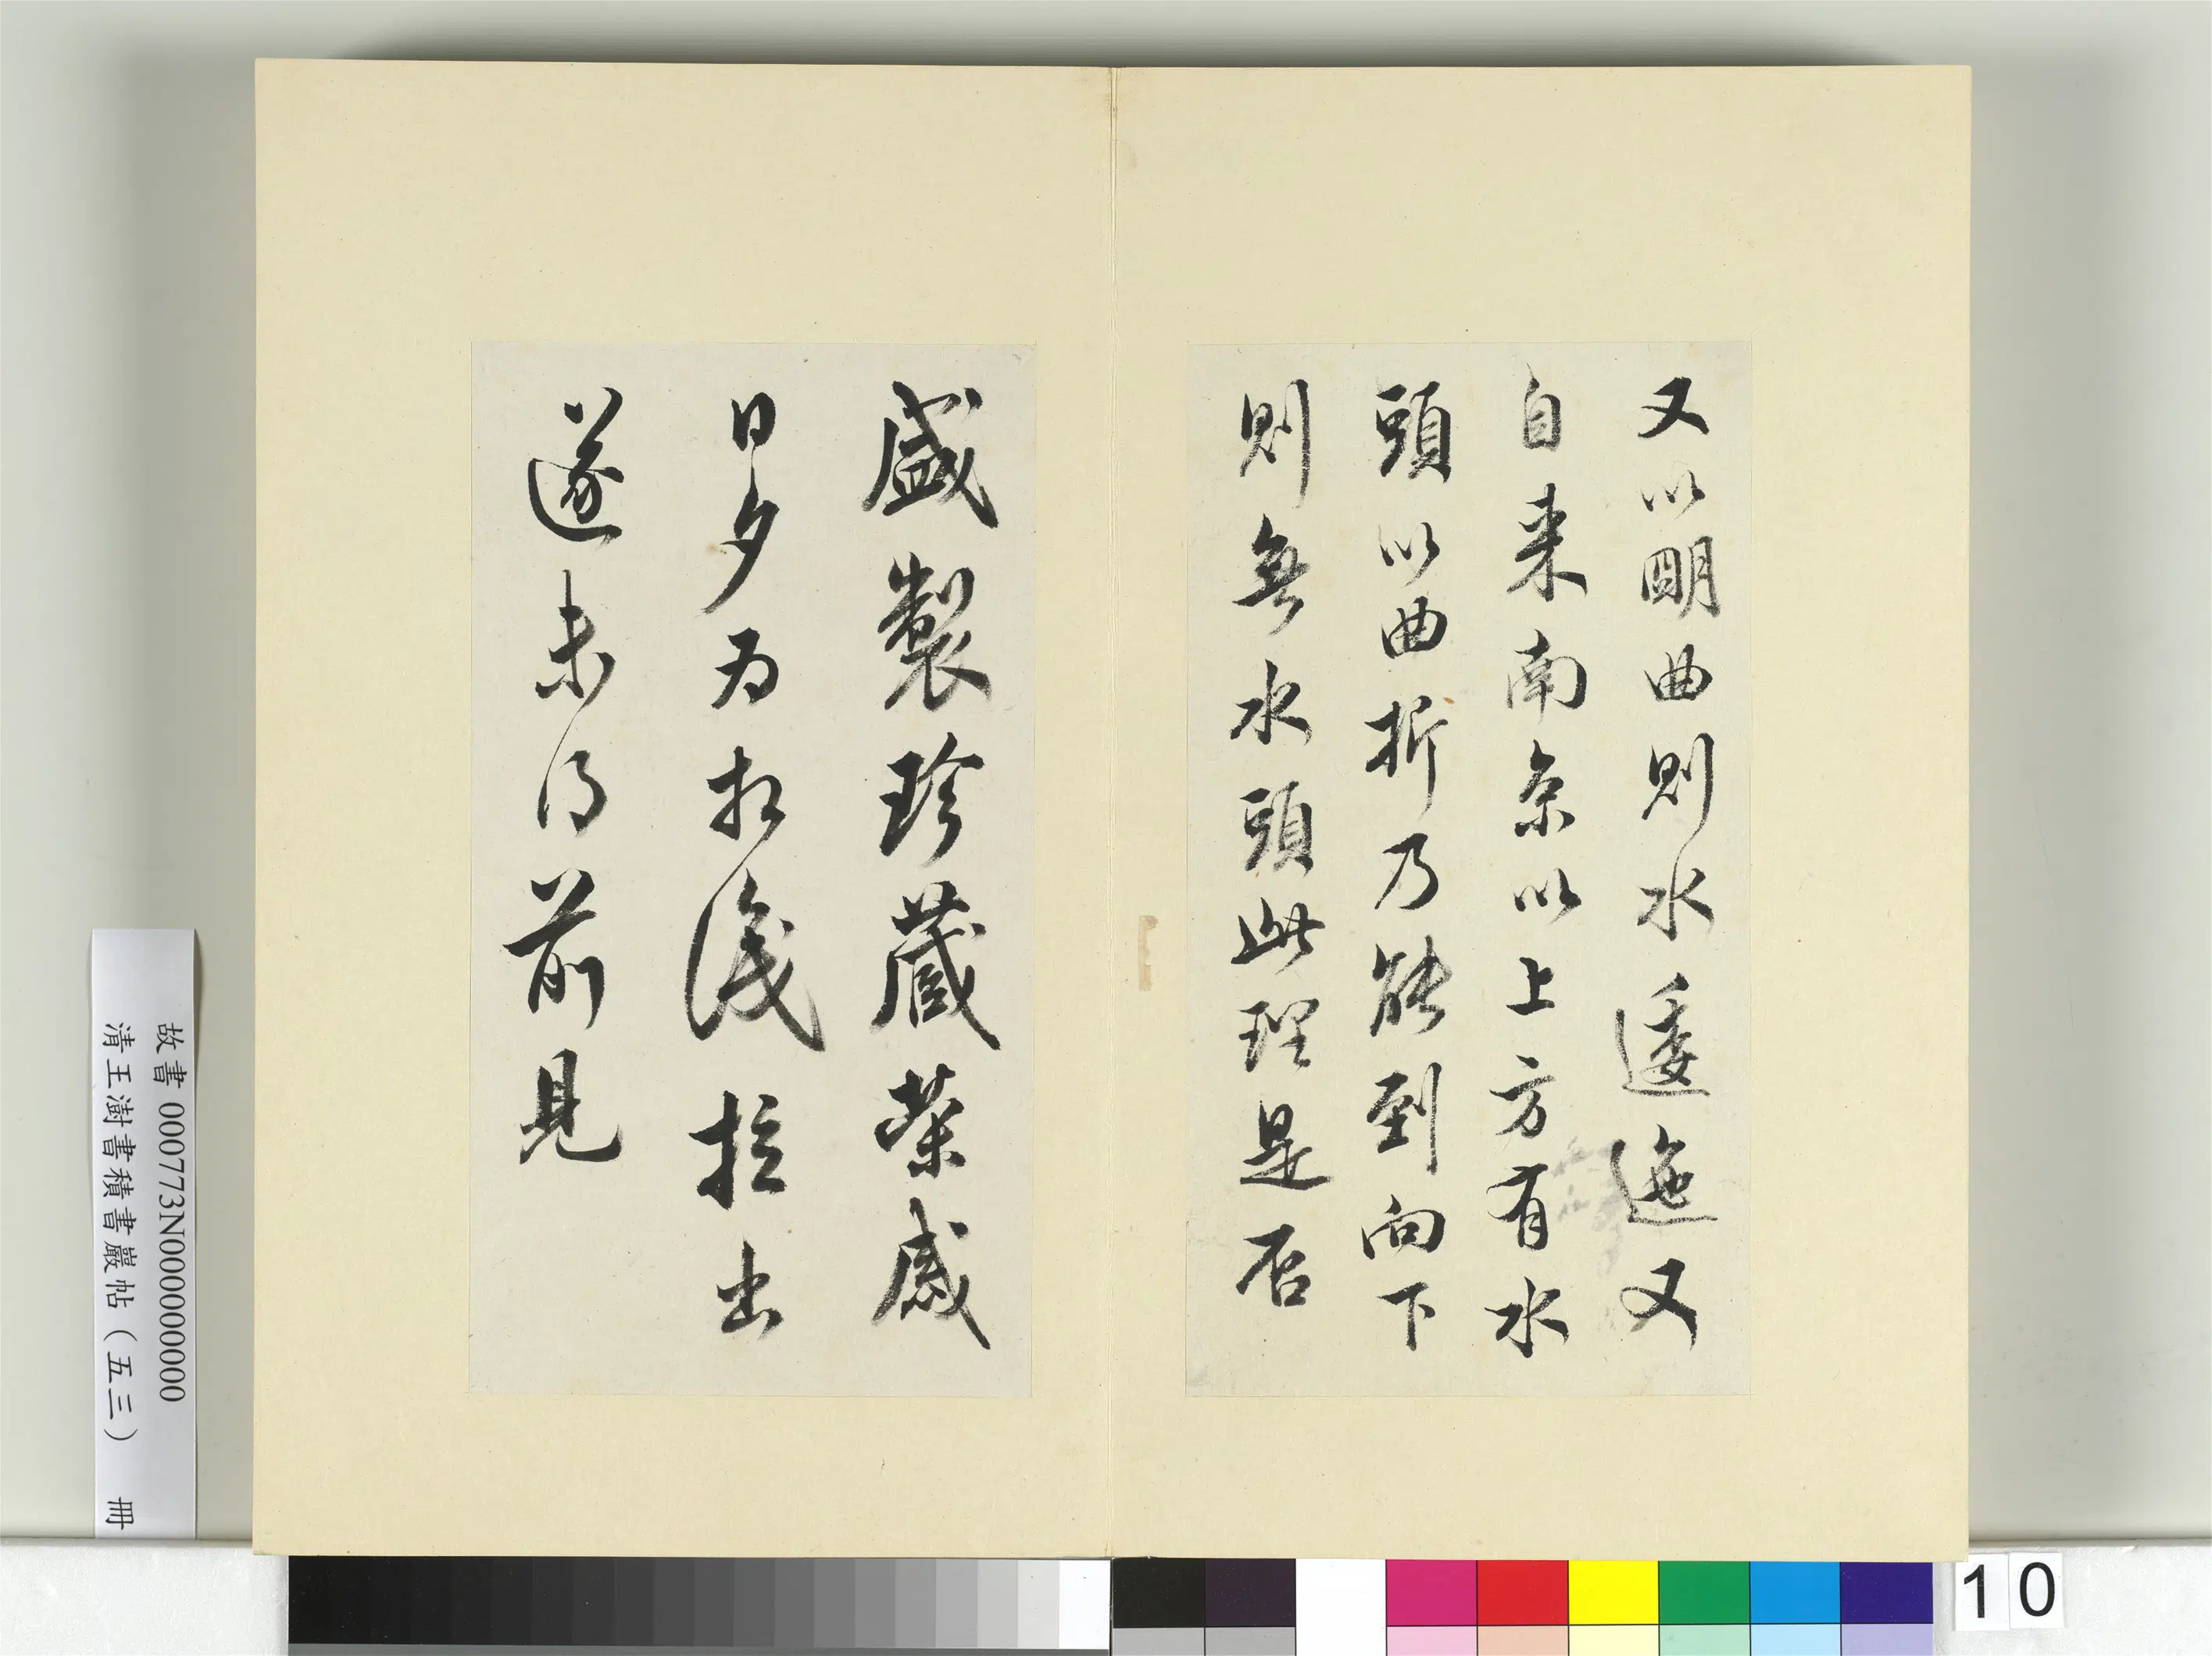 又以朙曲則水逶迤又
自来南京以上方有水
頭以曲折乃能到向下
則無水頭此理是否
盛製珍藏榮感
日夕為相識拉出
遂未得前見
故書 000773N000000000
清王澍書積書巖帖（五三） 冊
10